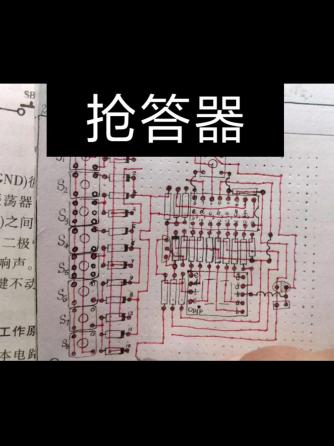 抢答器
SB
GND)
荡器
)之间
二极
响声。
键不动
工作原
本电路
S1
S2
S3
S4
S5
S6
S7
S8